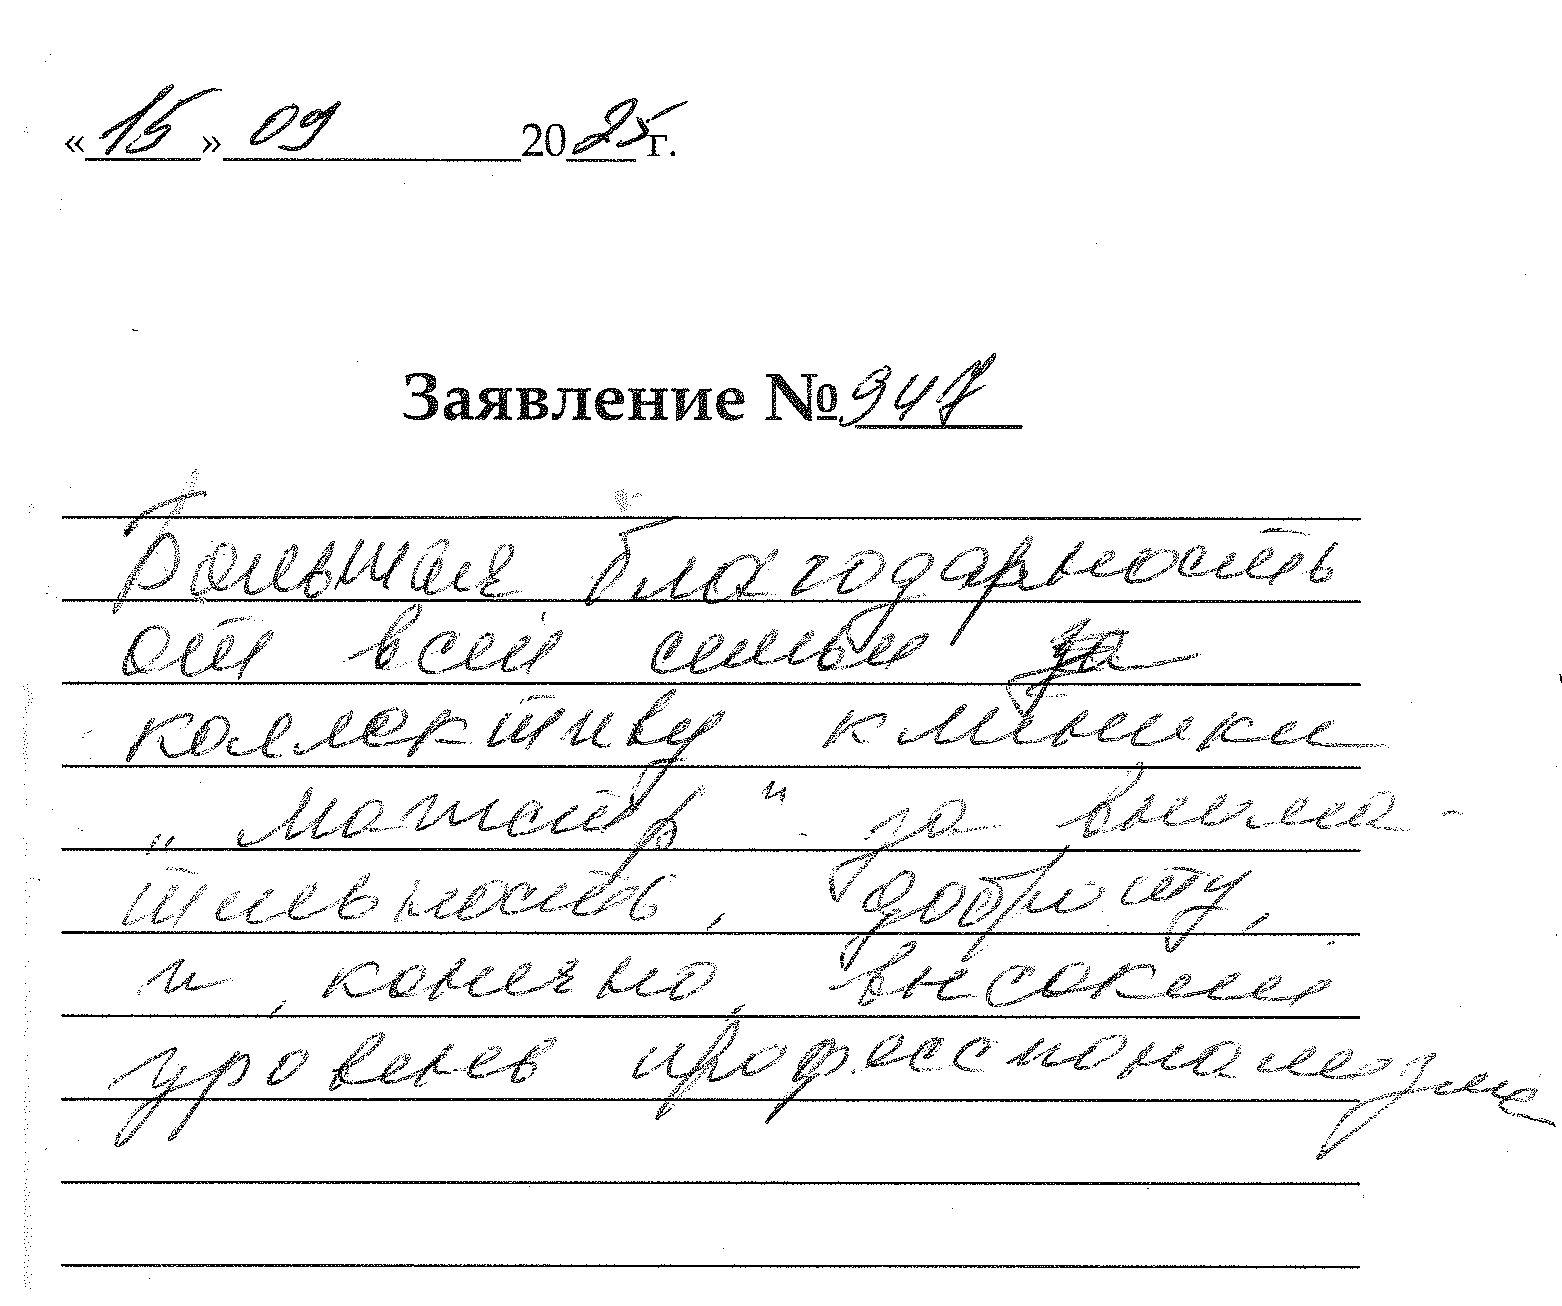 «15» 09 2025 г.
Заявление № 947
Большая благодарность
от всей семьи
коллективу клиники
„Мотситр“ за внима-
тельность, доброту,
и, конечно, высокий
уровень профессионализма